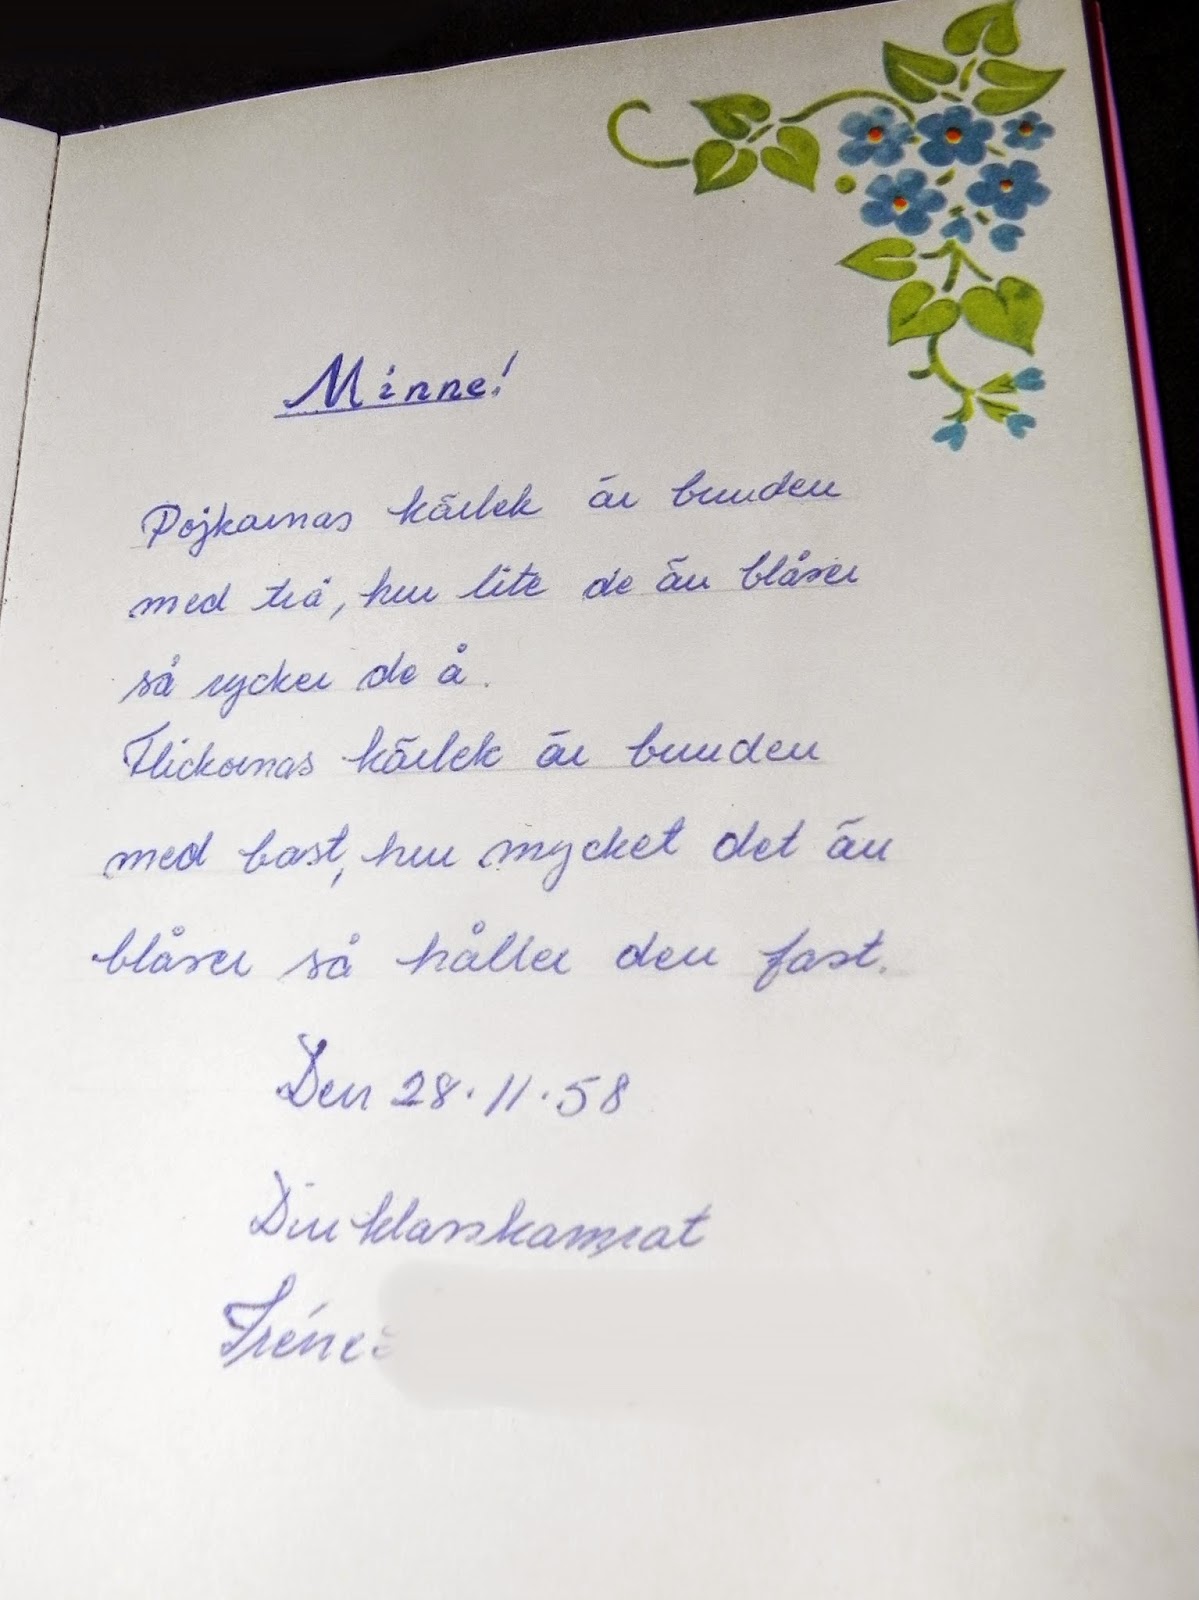 Minne!
Pojkarnas kärlek är bunden
med trå, hur lite de än blåser
så rycker de å.
Flickornas kärlek är bunden
med bast, hur mycket det än
blåser så håller den fast.
Den 28.11.58
Din klasskamrat
Iréne